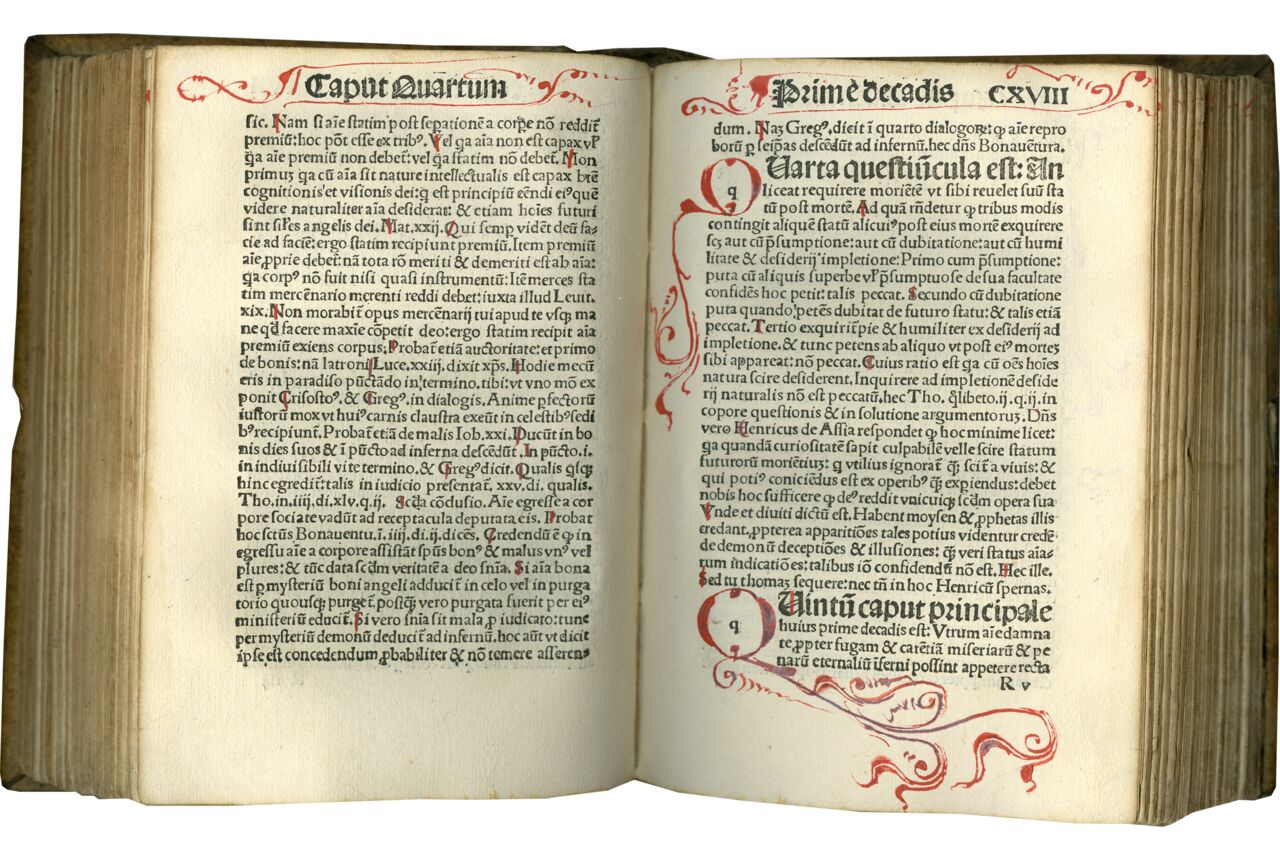 Caput Quartum
sic. Nam si aīe statim post sepationē a corpe nō reddit᷑
premiū: hoc pōt esse ex tribꝰ. Vel qa aīa non est capax vl̕
qa aīe premiū non debet᷑: vel qa statim nō debet᷑. Non
primuꝫ qa cū aīa sit nature intellectualis est capax btē
cognitionis et visionis dei: q est principiū eēndi eiꝰ quē
videre naturaliter aīa desiderat: & etiam hoīes futuri
sint sicꝰ angelis dei. Mat. xxij. Qui semꝑ vidēt deū fa-
cie ad faciē: ergo statim recipiunt premiū. Item premiū
aīe, ꝓprie debet᷑: nā tota rō meriti & demeriti est ab aīa:
qa corpꝰ nō fuit nisi quasi instrumentū: Itē merces sta
tim mercēnario merenti reddi debet: iuxta illud Leuit.
xix. Non morabit᷑ opus mercēnarij tui apud te vsqꝫ ma
ne qd̕ facere maxīe cōpetit deo: ergo statim recipit aīa
premiū exiens corpus. Probat᷑ etiā auctoritate: et primo
de bonis: nā latroni Luce. xxiij. dixit xp̄s. Hodie mecū
eris in paradiso pūctādo in termino. tibi: vt vno mō ex
ponit Crisostoꝰ. & Gregꝰ. in dialogis. Anime ꝑfectorū
iustorū mox vt huiꝰ carnis claustra exeūt in celestibꝰ sedi
bꝰ recipiunt. Probat᷑ etiā de malis Iob. xxi. Ducūt in bo
nis dies suos & ī pūcto ad inferna descēdūt. In pūcto. i.
in indiuisibili vite termino. & Gregꝰ dicit. Qualis qsqꝫ
hinc egredit᷑: talis in iudicio presentat᷑. xxv. di. qualis.
Tho. in. iiij. di. xlv. q. ij. Scd̕a cōclusio. Aīe egresse a cor
pore sociate vadūt ad receptacula deputata eis. Probat
hoc sctūs Bonauentu. ī. iiij. di. ij. dicēs. Credendū ē ꝙ in
egressu aīe a corpore assistāt spūs bonꝰ & malus vnꝰ vel
plures: & tūc data scd̕m veritatē a deo snīa. Si aīa bona
est ꝑ mysteriū boni angeli adducit᷑ in celo vel in purga
torio quousqꝫ purget᷑. postqꝫ vero purgata fuerit per eiꝰ
ministeriū educit᷑. Si vero snīa sit mala, ꝓ iudicato: tunc
per mysteriū demonū deducit᷑ ad infernū. hoc aūt vt dicit
ipse est concedendum, ꝓbabiliter & nō temere asseren⸗
Prime decadis CXVIII
dum. Naꝫ Gregꝰ, dicit ī quarto dialogoꝝ: ꝙ aīe repro
borū ꝑ seip̄as descēdūt ad infernū. hec dn̄s Bonauētura.
QUarta questiūcula est: An
q
liceat requirere moriētē vt sibi reuelet suū sta
tū post mortē. Ad quā rn̄detur ꝙ tribus modis
contingit aliquē statū alicuiꝰ post eius mortē exquirere
scꝫ aut cū p̄sumptione: aut cū dubitatione: aut cū humi
litate & desiderij impletione: Primo cum p̄sumptione:
puta cū aliquis superbe vl̕ p̄sumptuose de sua facultate
confidēs hoc petit: talis peccat. Secundo cū dubitatione
puta quando petēs dubitat de futuro statu: & talis etiā
peccat. Tertio exquirit᷑ pie & humiliter ex desiderij ad
impletione. & tunc petens ab aliquo vt post eiꝰ morteꝫ
sibi appareat: nō peccat. Cuius ratio est qa cū oēs hoīes
natura scire desiderent. Inquirere ad impletionē deside
rij naturalis nō est peccatū. hec Tho. qlibeto. ij. q. ij. in
corpore questionis & in solutione argumentoruꝫ. Dn̄s
vero Henricus de Assia respondet ꝙ hoc minime licet:
qa quandā curiositatē sapit culpabilē velle scire statum
futurorū morietiuꝫ: q vtilius ignorat᷑ qꝫ scit᷑ a viuis: &
qui potiꝰ coniciēdus est ex operibꝰ qꝫ expiendus: debet
nobis hoc sufficere ꝙ deꝰ reddit vnicuiqꝫ scd̕m opera sua
Vnde et diuiti dictū est. Habent moysen & ꝓphetas illis
credant. ꝓpterea apparitiōes tales potius videntur credē
de demonū deceptiōes & illusiones: qꝫ veri status aīa-
rum indicatiōes: talibus iō confidendū nō est. Hec ille.
Sed tu thomaꝫ sequere: nec tū in hoc Henricū spernas.
QUintū caput principale
q
huius prime decadis est: Vtrum aīe damna
te, ꝓpter fugam & carētiā miseriarū & pe
narū eternaliū īferni possint appetere recta
R v